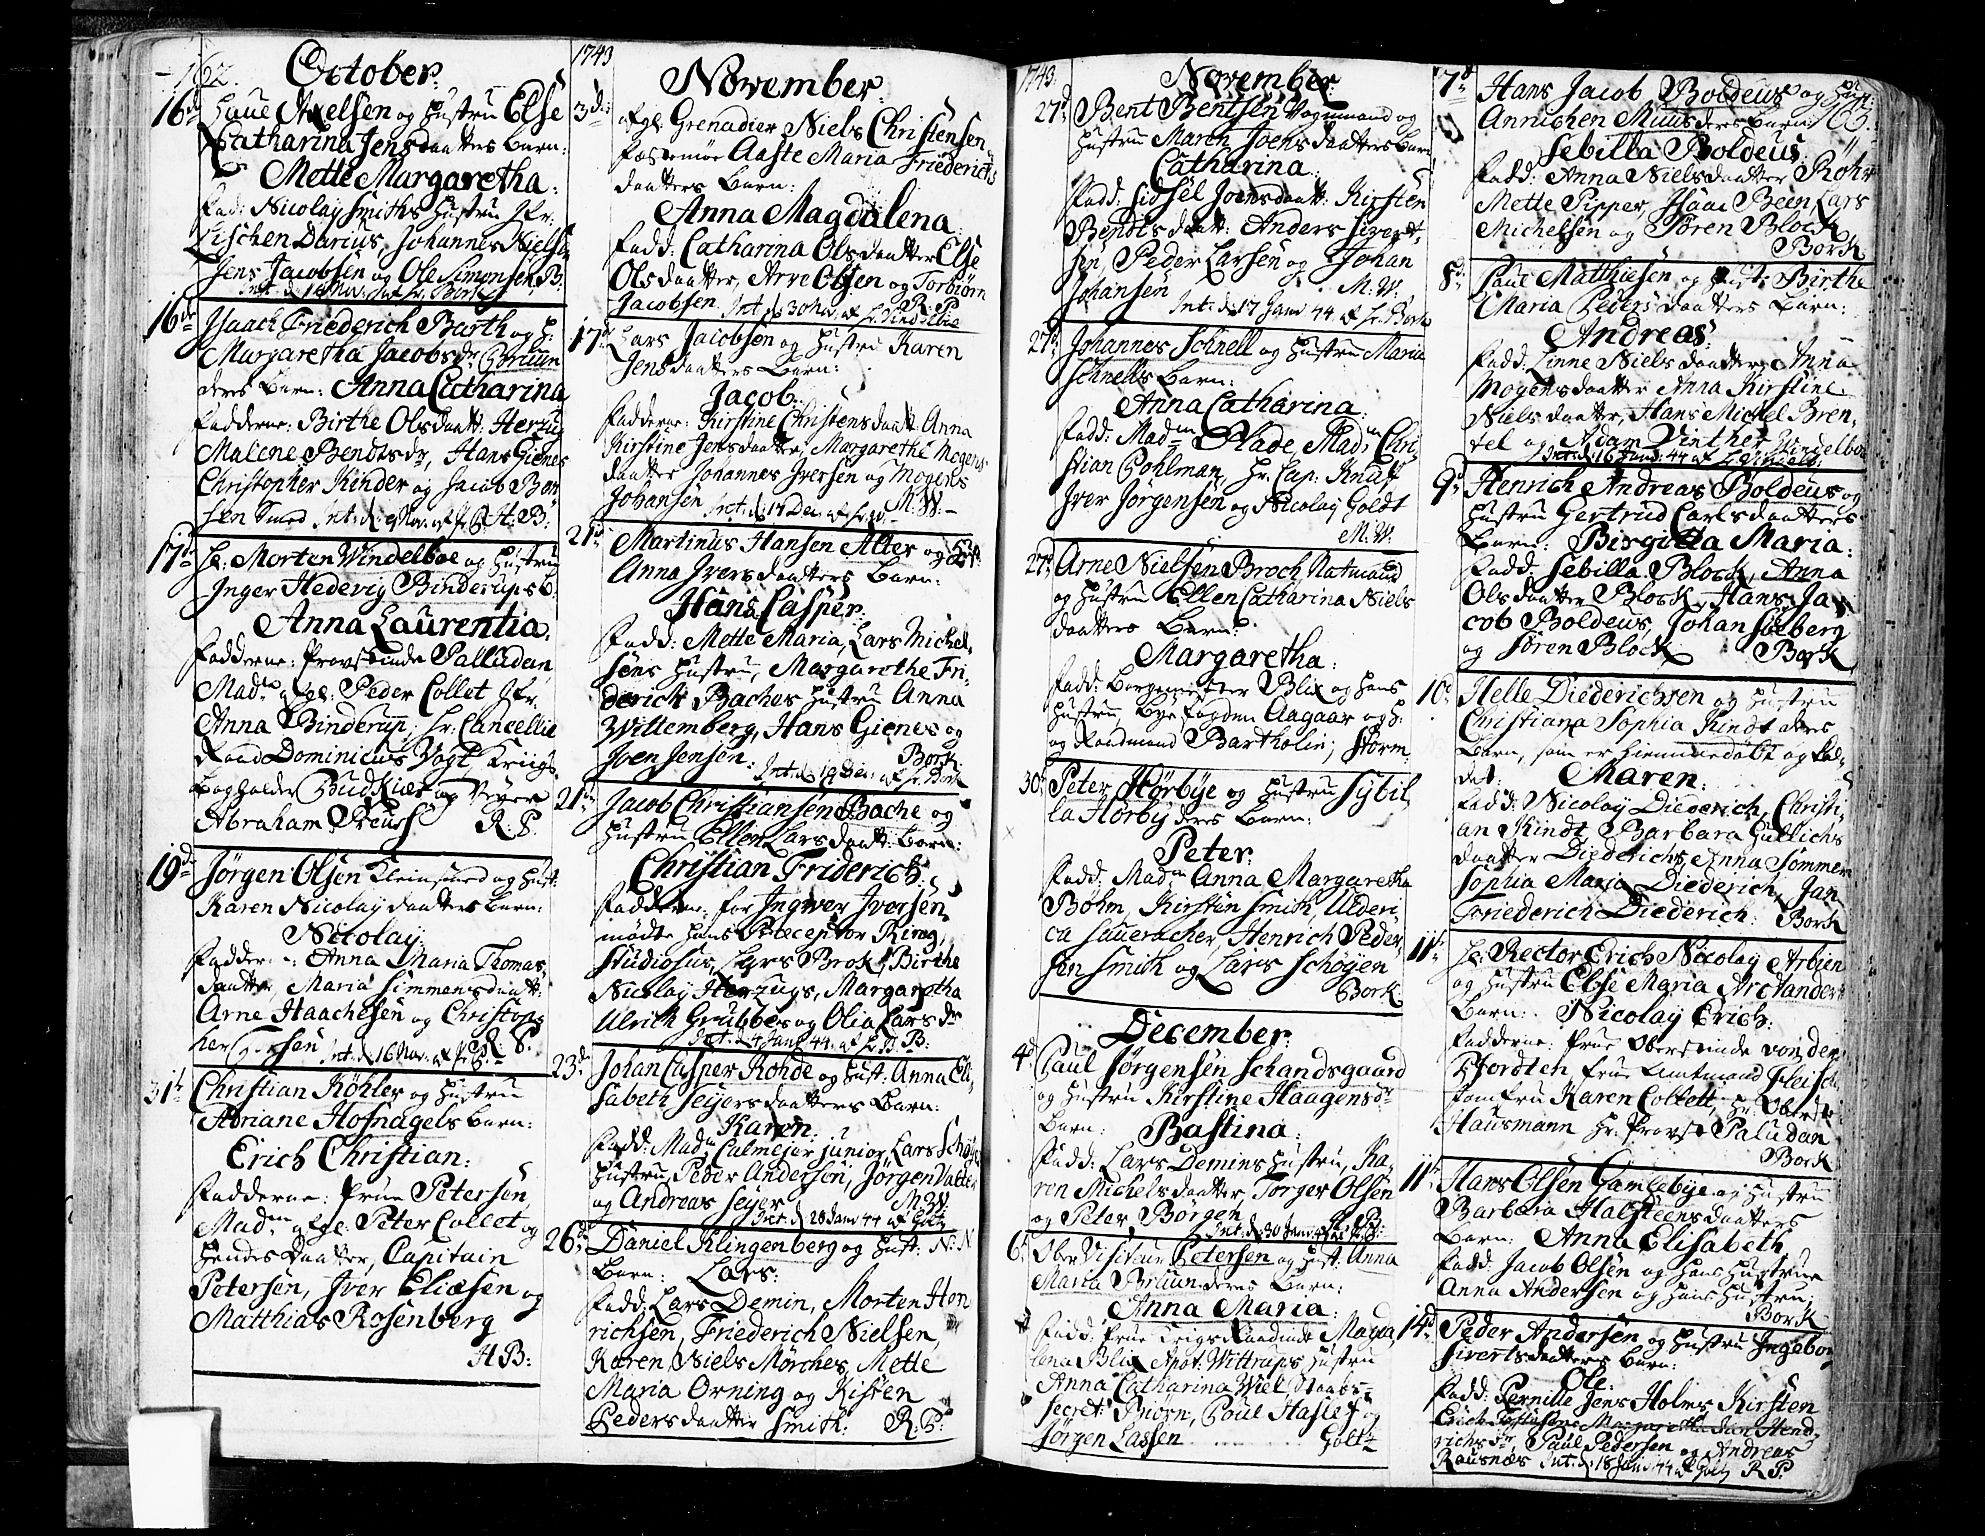 162.
October.
16de
Axelsen og Hustru Else
Catharina Jensdaatters Barn:
Mette Margaretha:
Fad: Nicolay Smiths Hustru Jfr:
Lischen Darius, Johannes Nielsen
Jens Jacobsen og Ole Simonsen B.
16de Isaach Friederich Barth og H:
Margaretha Jacobsdr Bruun
deres Barn: Anna Catharina
Fadderne: Birthe Olsdaatt: Herzug
Malene Bendtsdr, Hans Gienes
Christopher Kinder og Jacob
Smed Int: d: 9 Nov. H: B:
17de Hr. Morten Windelboe og Hustru
Inger Hedevig Binderups B.
Anna Laurentia.
Fadderne: Provstinde Palludan,
Madme Peder Collet Jfr.
Anna Binderup, Hr. Cancellie
Raad Dominicus Vogt, Kriigs
Bogholder Budkiær og
Abraham Preuss R. P.
19de Jørgen Olsen Kleinsmed og Hust:
Karen Nicolaydaatters Barn:
Nicolay.
Fadder: Anna Maria Thomas
daatter, Maria Simmensdaatt:
Arne Haachesen og Christop
her Int: d. 16 Nov. R. S.
31te Christian Köhler og Hustru
Adriane Hofnagels Barn:
Erich Christian:
Fadderne: Frue Petersen,
Madme Peter Collet og
hendes Daatter, Capitain
Petersen, Iver Eliæsen og
Matthias Rosenberg
H B:
1743
November.
3de
afgl: Grenadier Niels Christensen
Fæstemøe Aaste Maria Friederichs
daatters Barn:
Anna Magdalena
Fadd: Catharina Olsdaatter Else
Olsdaatter, Arve Olsen og Torbiørn
Jacobsen. Int. d: 30 Nov. af Hr. Vindelboe R. P.
17de Lars Jacobsen og Hustru Karen
Jensdaatters Barn:
Jacob.
Fadderne: Kirstine Christensdaatt: Anna
Kirstine Jensdaatter, Margarethe Mogens
daatter Johannes Iversen og Mogens
Johansen Int: d: 17 Dec. M. W.
21de Martinus Hansen Alter og Hust.
Anna Iversdaatters Barn:
Hans Casper.
Fadd: Mette Maria, Lars Michel
sens Hustru, Margarethe Fri
derich Baches Hustru Anna
Willemberg, Hans Gienes og
Joen Jensen. Bork.
Int: d: 19 Dec: af Hr. Bork
21de Jacob Christiansen Bache og
Hustru Ellen Larsdaatt: Barn:
Christian Friderich.
Fadderne: for Ingwer Iversen,
mødte hans Præceptor Ring,
Studiosus, Lars Brok, Birthe
Nicolay Herzugs, Margaretha
Ulrich Grubbes og Olia Larsdr
Int: d: 4 Janv. 44. af H. B:
23de Johan Casper Rohde og Hust: Anna Eli
sabeth Seyersdaatters Barn:
Karen:
Fadd: Madme Calmejer junior, Lars Schøyens
Hustru, Peder Andersen, Jørgen Datter
og Andreas Seyer M. W.
Int: d. 28 Janv 44 af Goltz
26de Daniel Klingenberg og Hust: N: N
Barn: Lars:
Fadd: Lars Demin, Morten Hen
richsen, Friederich Nielsen,
Karen Niels Mörches, Mette
Maria Orning og Kisten
Pedersdaatter Smith: R: P:
1743.
November:
27de Bent Bentsen Vognmand og
Hustru Maren Joensdaatters Barn
Catharina.
Fadd: Sidsel Joensdaatt: Kirsten
Bendtsdaatt: Anders Sivert
sen, Peder Larsen og Johan
Johansen M: W:
Int: d: 17 Janv 44 af Hr. Bork
27de Johannes Schnell og Hustru Maria
Schnells Barn:
Anna Catharina.
Fadd: Madme Plade, Madme Chri
stian Pohlman, Hr. Cap: Knuff
Iver Jørgensen og Nicolay Goldt
M: W:
27de Arne Nielsen Broch Natmand
og Hustru Ellen Catharina Niels
daatters Barn:
Margaretha:
Fadd: Borgemester Blix og hans
Hustru, Byefogden Aagaar og H:
og Raadmand Bartholin; Storm
30te Peter Hörbye og Hustru Sybil
la Hörby deres Barn:
Peter:
Fadd: Madme Anna Margaretha
Böhm, Kirsten Smith, Ulderi
ca Sauerbacher, Henrich Peder
sen Smith og Lars Schøyen
Bork
December:
4de Paul Jørgensen Schandsgaard
og Hustru Kirstine Haagensdr
Barn: Bastina:
Fadd: Lars Demins Hustru, Ka
ren Michelsdaatter, Torger Olsen
og Peter Borgen R. P:
Int: d: 30 Janv. 44
6te Over Visiteur Petersen og Hust: Anna
Maria Bruun deres Barn:
Anna Maria:
Fadd: Frue Krigs Raadinde Magda
lena Blix Apot: Wittrups Hustru
Anna Catharina Wiel, Staabs
Secret: Biørn, Poul Hasle og
Jørgen Lassen Goltz
163.
7de Hans Jacob Boldeus og Hust:
Annichen Muus deres Barn:
Sebilla Boldeus.
Fadd: Anna Nielsdaatter Röhr
Mette Pipper, Isaac Been, Lars
Michelsen og Søren Block
Bork
8de Paul Matthiesen og Hust: Birthe
Maria Pedersdaatters Barn:
Andreas:
Fadd: Linne Nielsdaatter, Anna
Mogensdaatter Anna Kirstine
Nielsdaatter, Hans Michel Bren
tel og Adam Vinther Windelboe
Int: d: 16 Janv: 44 af Hr. Vindelb:
9de Henrich Andreas Boldeus og
Hustru Gertrud Carlsdaatters
Barn: Birgitta Maria:
Fadd: Sebilla Block, Anna
Olsdaatter Block, Hans Ja
cob Boldeus, Johan Siøberg
og Søren Block Bork
10de Helle Diederichsen og Hustru
Christiana Sophia Kindt deres
Barn, som er hiemmedøbt og kal
det: Maren:
Fadd: Nicolay Diederich, Christi
an Kindt, Barbara Gullichs
daatter Diederichs, Anna Sommer
Sophia Maria Diederich, Jan
Friederich Diederich: Bork
11te Hr: Rector Erich Nicolay Arbien
og Hustru Else Maria Arctander
Barn: Nicolay Erich:
Fadderne: Frue Oberstinde von der
Pfordten Frue Amtmand Fleisch
Jomfru Karen Collett, Hr. Oberste
Hausmann Hr. Provst Paludan
Bork
11te Hans Olsen Gamlebye og Hustru
Barbara Halsteensdaatters
Barn: Anna Elisabeth
Fadd: Jacob Olsen og hans Hustrue
Anna Andersen og hans Hustru;
Bork
14de Peder Andersen og Hustru Ingeborg
Sivertsdaatters Barn:
Ole:
Fadd: Pernille Jens Holms Kirsten
Erich Margaretha Hend
richsdr, Paul Pedersen og Andreas
Rausnæs Int: d: 18 Janv 44 af Goltz R P: